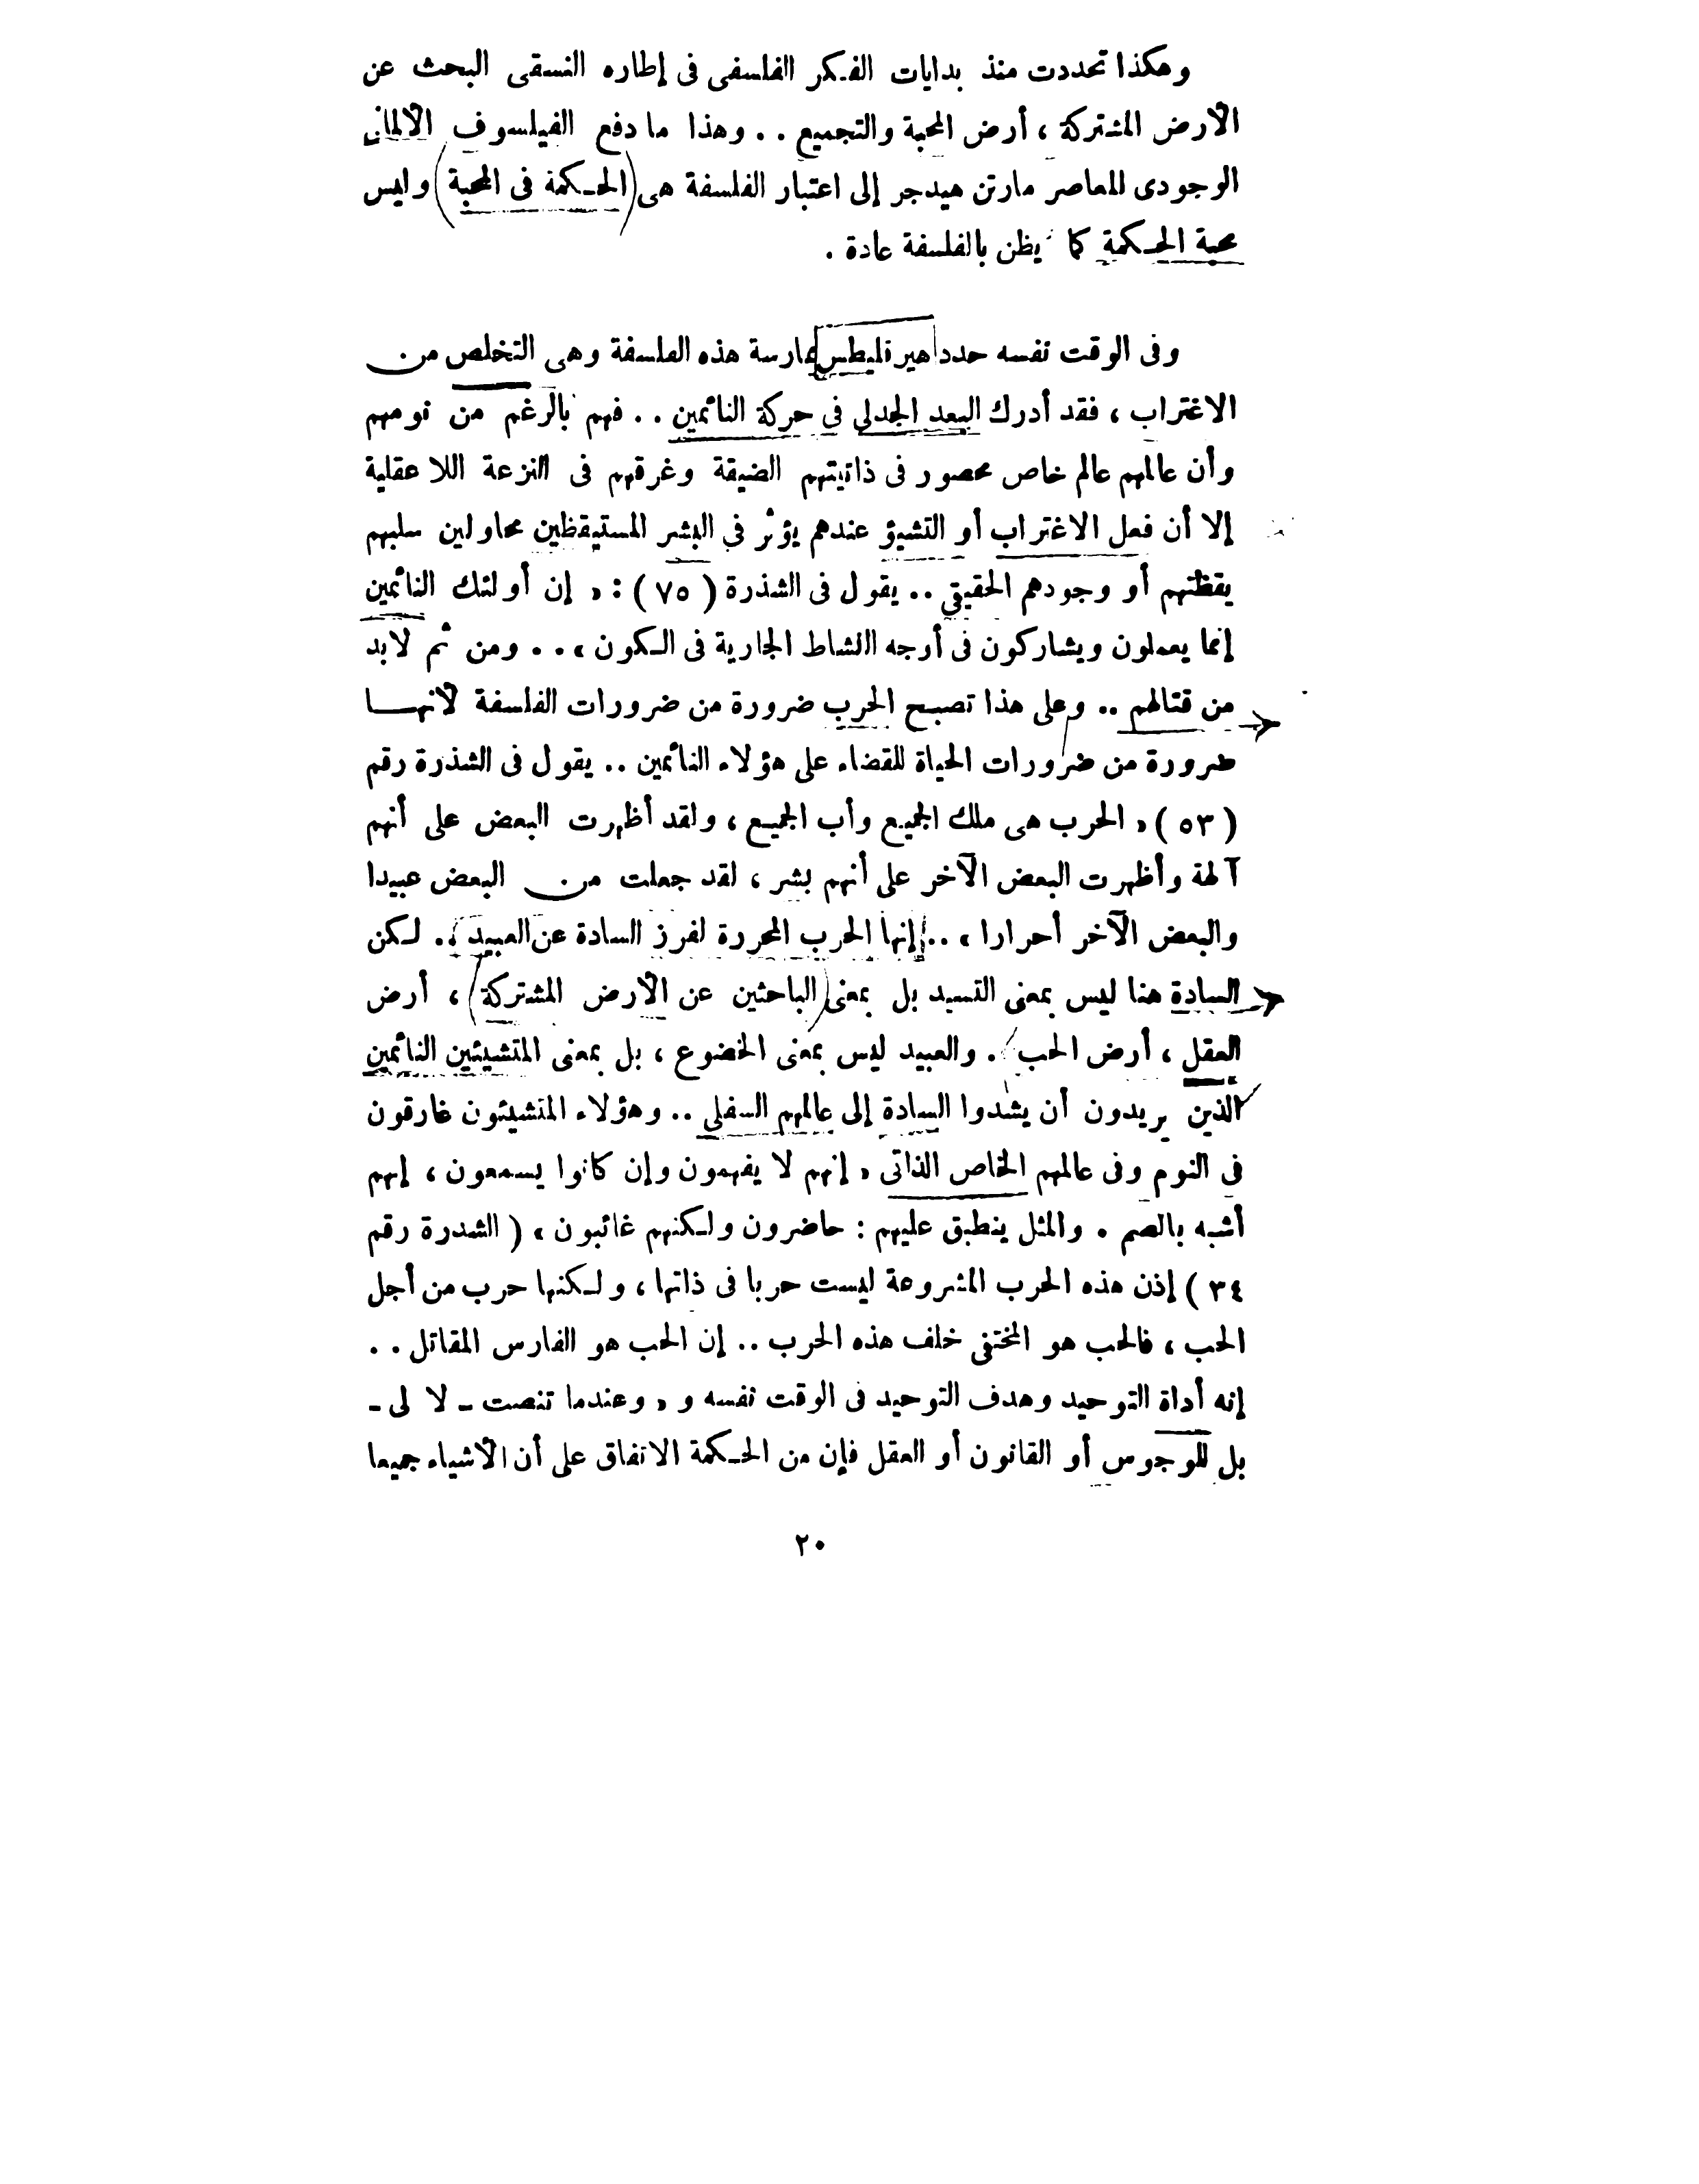 وهكذا تحددت منذ بدايات الفكر الفلسفى فى إطاره النسقى البحث عن
الأرض المشتركة ، أرض المحبة والتجميع . . وهذا ما دفع الفيلسوف الألمانى
الوجودى المعاصر مارتن هيدجر إلى اعتبار الفلسفة هى (الحكمة فى المحبة) وليس
محبة الحكمة كما يظن بالفلسفة عادة .
وفى الوقت نفسه حدد هيرقليطس ممارسة هذه الفلسفة وهى التخلص من
الاغتراب ، فقد أدرك البعد الجدلى فى حركة النائمين . . فهم بالرغم من نومهم
وأن عالمهم عالم خاص محصور فى ذاتيتهم الضيقة وغرقهم فى النزعة اللا عقلية
إلا أن فعل الاغتراب أو التشيؤ عندهم يؤثر فى البشر المستيقظين محاولين سلبهم
يقظتهم أو وجودهم الحقيقى .. يقول فى الشذرة ( ٧٥ ) : « إن أولئك النائمين
إنما يعملون ويشاركون فى أوجه النشاط الجارية فى الكون » . . ومن ثم لابد
من قتالهم .. وعلى هذا تصبح الحرب ضرورة من ضرورات الفلسفة لأنهـا
ضرورة من ضرورات الحياة للقضاء على هؤلاء النائمين .. يقول فى الشذرة رقم
( ٥٣ ) « الحرب هى ملك الجميع وأب الجميع ، ولقد أظهرت البعض على أنهم
آلهة وأظهرت البعض الآخر على أنهم بشر ، لقد جعلت من البعض عبيدا
والبعض الآخر أحرارا » .. إنها الحرب المحررة لفرز السادة عن العبيد .. لكن
السادة هنا ليس بمعنى التسيد بل بمعنى (الباحثين عن الأرض المشتركة) ، أرض
العقل ، أرض الحب . والعبيد ليس بمعنى الخضوع ، بل بمعنى المتشيئين النائمين
الذين يريدون أن يشدوا السادة إلى عالمهم السفلى .. وهؤلاء المتشيئون غارقون
فى النوم وفى عالمهم الخاص الذاتى « إنهم لا يفهمون وإن كانوا يسمعون ، إنهم
أشبه بالصم . والمثل ينطبق عليهم : حاضرون ولكنهم غائبون » ( الشدرة رقم
٣٤ ) إذن هذه الحرب المشروعة ليست حربا فى ذاتها ، ولكنها حرب من أجل
الحب ، فالحب هو المختفى خلف هذه الحرب .. إن الحب هو الفارس المقاتل . .
إنه أداة التوحيد وهدف التوحيد فى الوقت نفسه و « وعندما تنصت ـ لا لى ـ
بل للوجوس أو القانون أو العقل فإن من الحكمة الاتفاق على أن الأشياء جميعا
٢٠